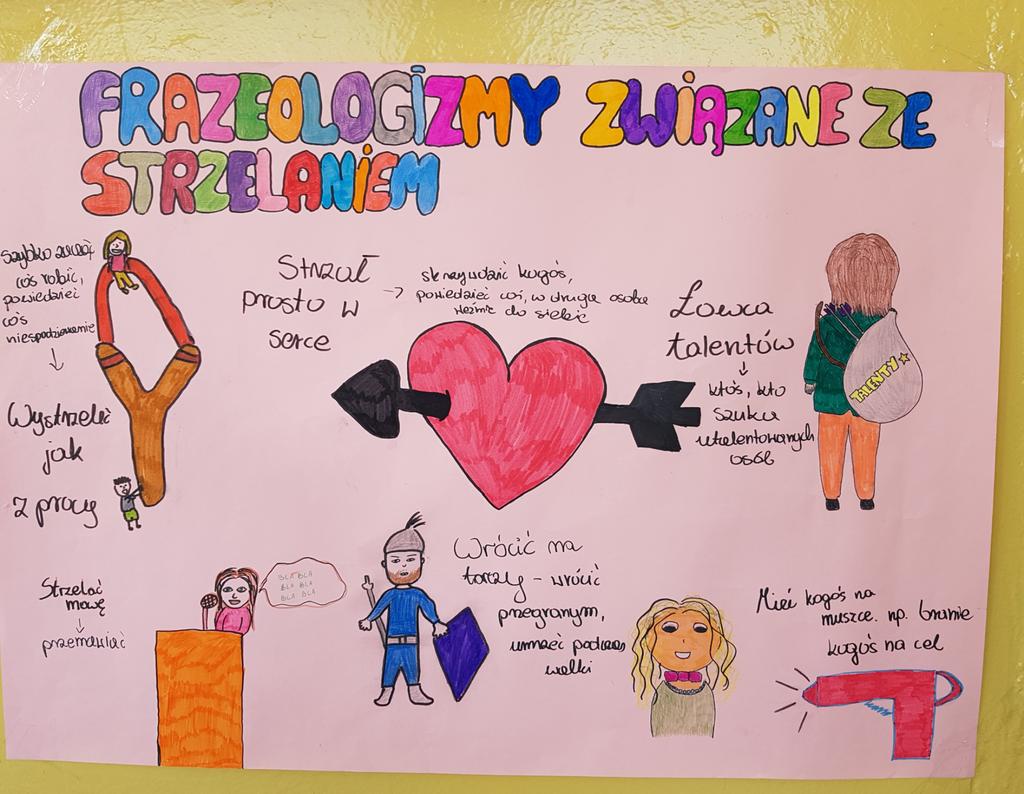 FRAZEOLOGIZMY ZWIĄZANE ZE
STRZELANIEM
Szybko zacząć
coś robić,
powiedzieć
coś
niespodziewanie
Wystrzelić
jak
z procy
Strzał
prosto w
serce
skrzywdzić kogoś,
powiedzieć coś, w druga osoba
weźmie do siebie
Łowca
talentów
ktoś, kto
szuka
utalentowanych
osób
TALENTY
Strzelać
mowę
przemawiać
BLA BLA
BLA BLA
BLA BLA
Wrócić na
tarczy - wrócić
przegranym,
umrzeć podczas
walki
Mieć kogoś na
muszce. np. branie
kogoś na cel